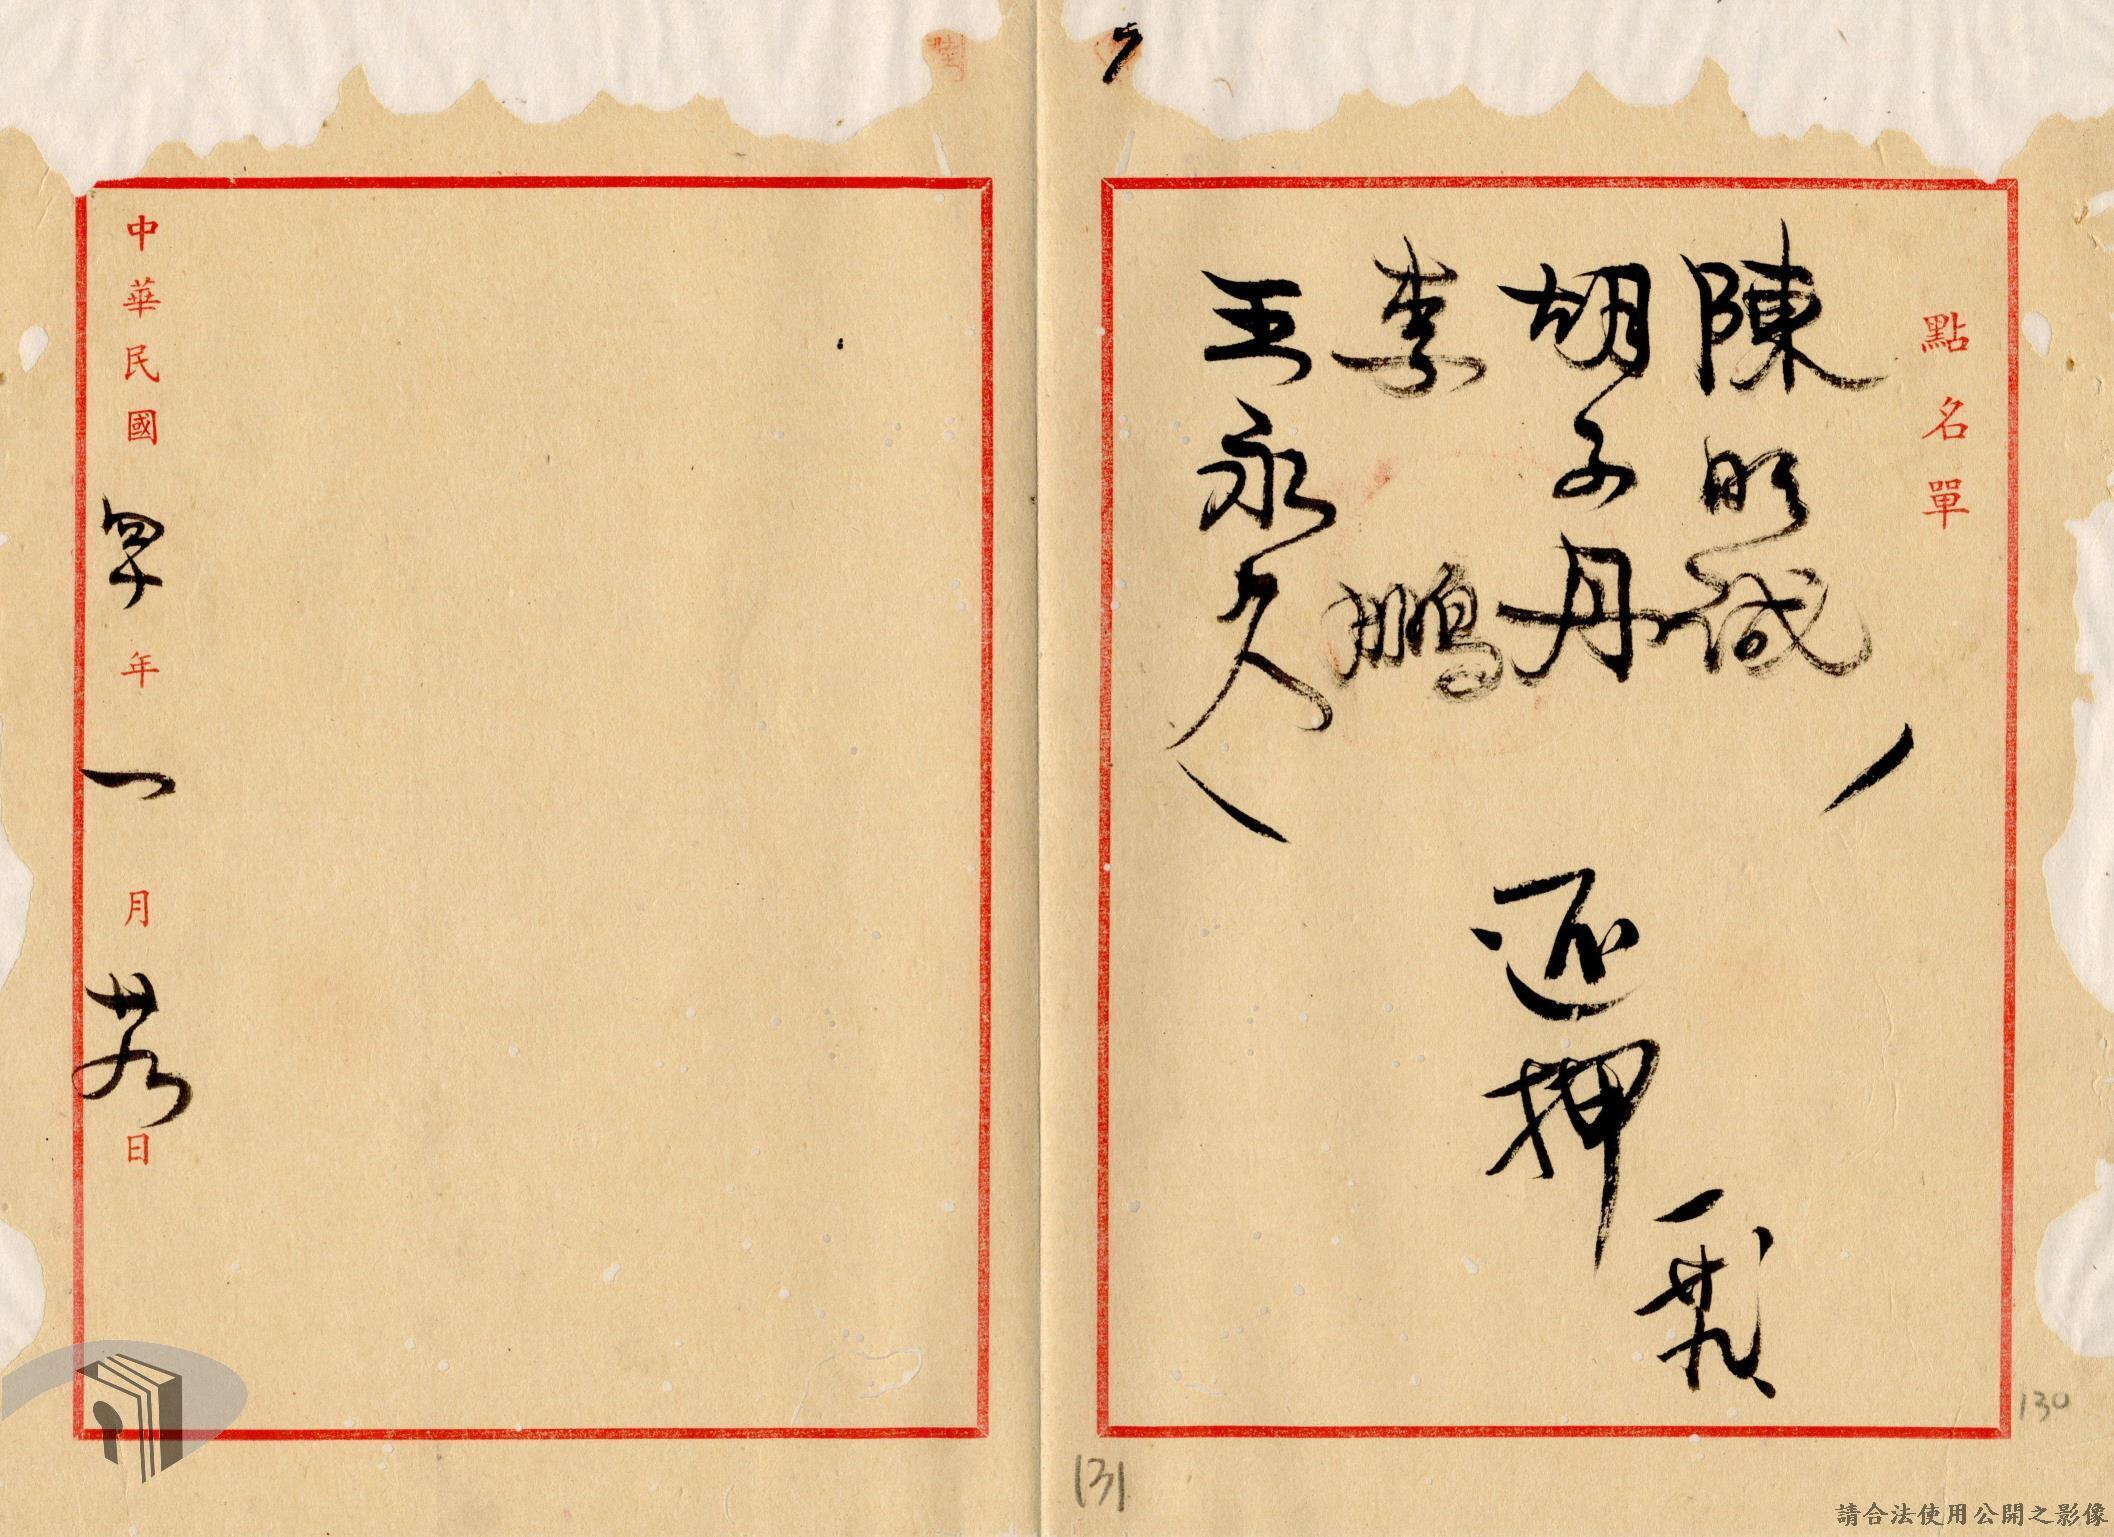 點名單
陳明誠
胡子丹
李鵬
王永久
還押
一廿九
中華民國四十年一月廿九日
130
131
請合法使用公開之影像